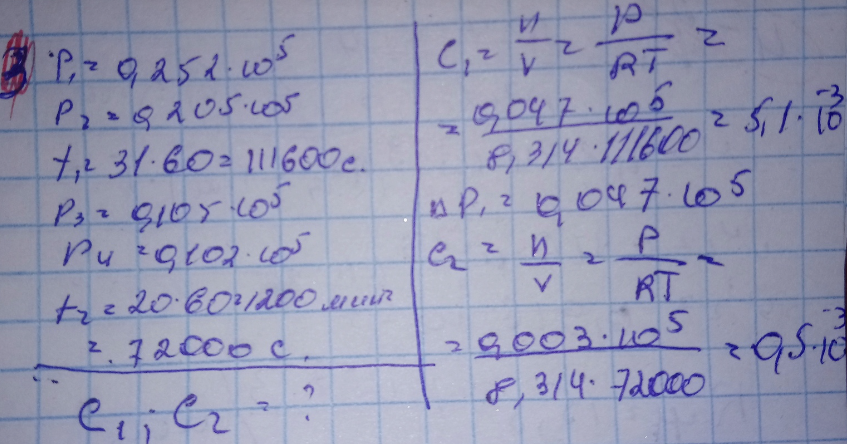 3 P₁ = 0,252·10⁵
P₂ = 0,205·10⁵
t₁ = 31·60 = 111600 с.
P₃ = 0,105·10⁵
P₄ = 0,102·10⁵
t₂ = 20·60 = 1200 мин =
= 72000 с.
C₁; C₂ = ?
C₁ = n/V = P/RT =
= 0,047·10⁵/8,314·111600 = 5,1·10⁻³
ΔP₁ = 0,047·10⁵
C₂ = n/V = P/RT =
= 0,003·10⁵/8,314·72000 = 0,5·10⁻³